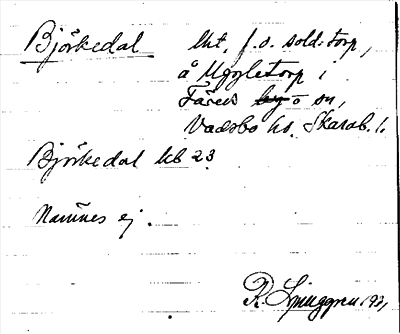 Björkedal lht, f.d. sold.torp,
å Uggletorp i
Färeds by o sn,
Vadsbo hd. Skarab. l.
Björkedal kb 23
Namnes ej.
R. Ljunggren 1931